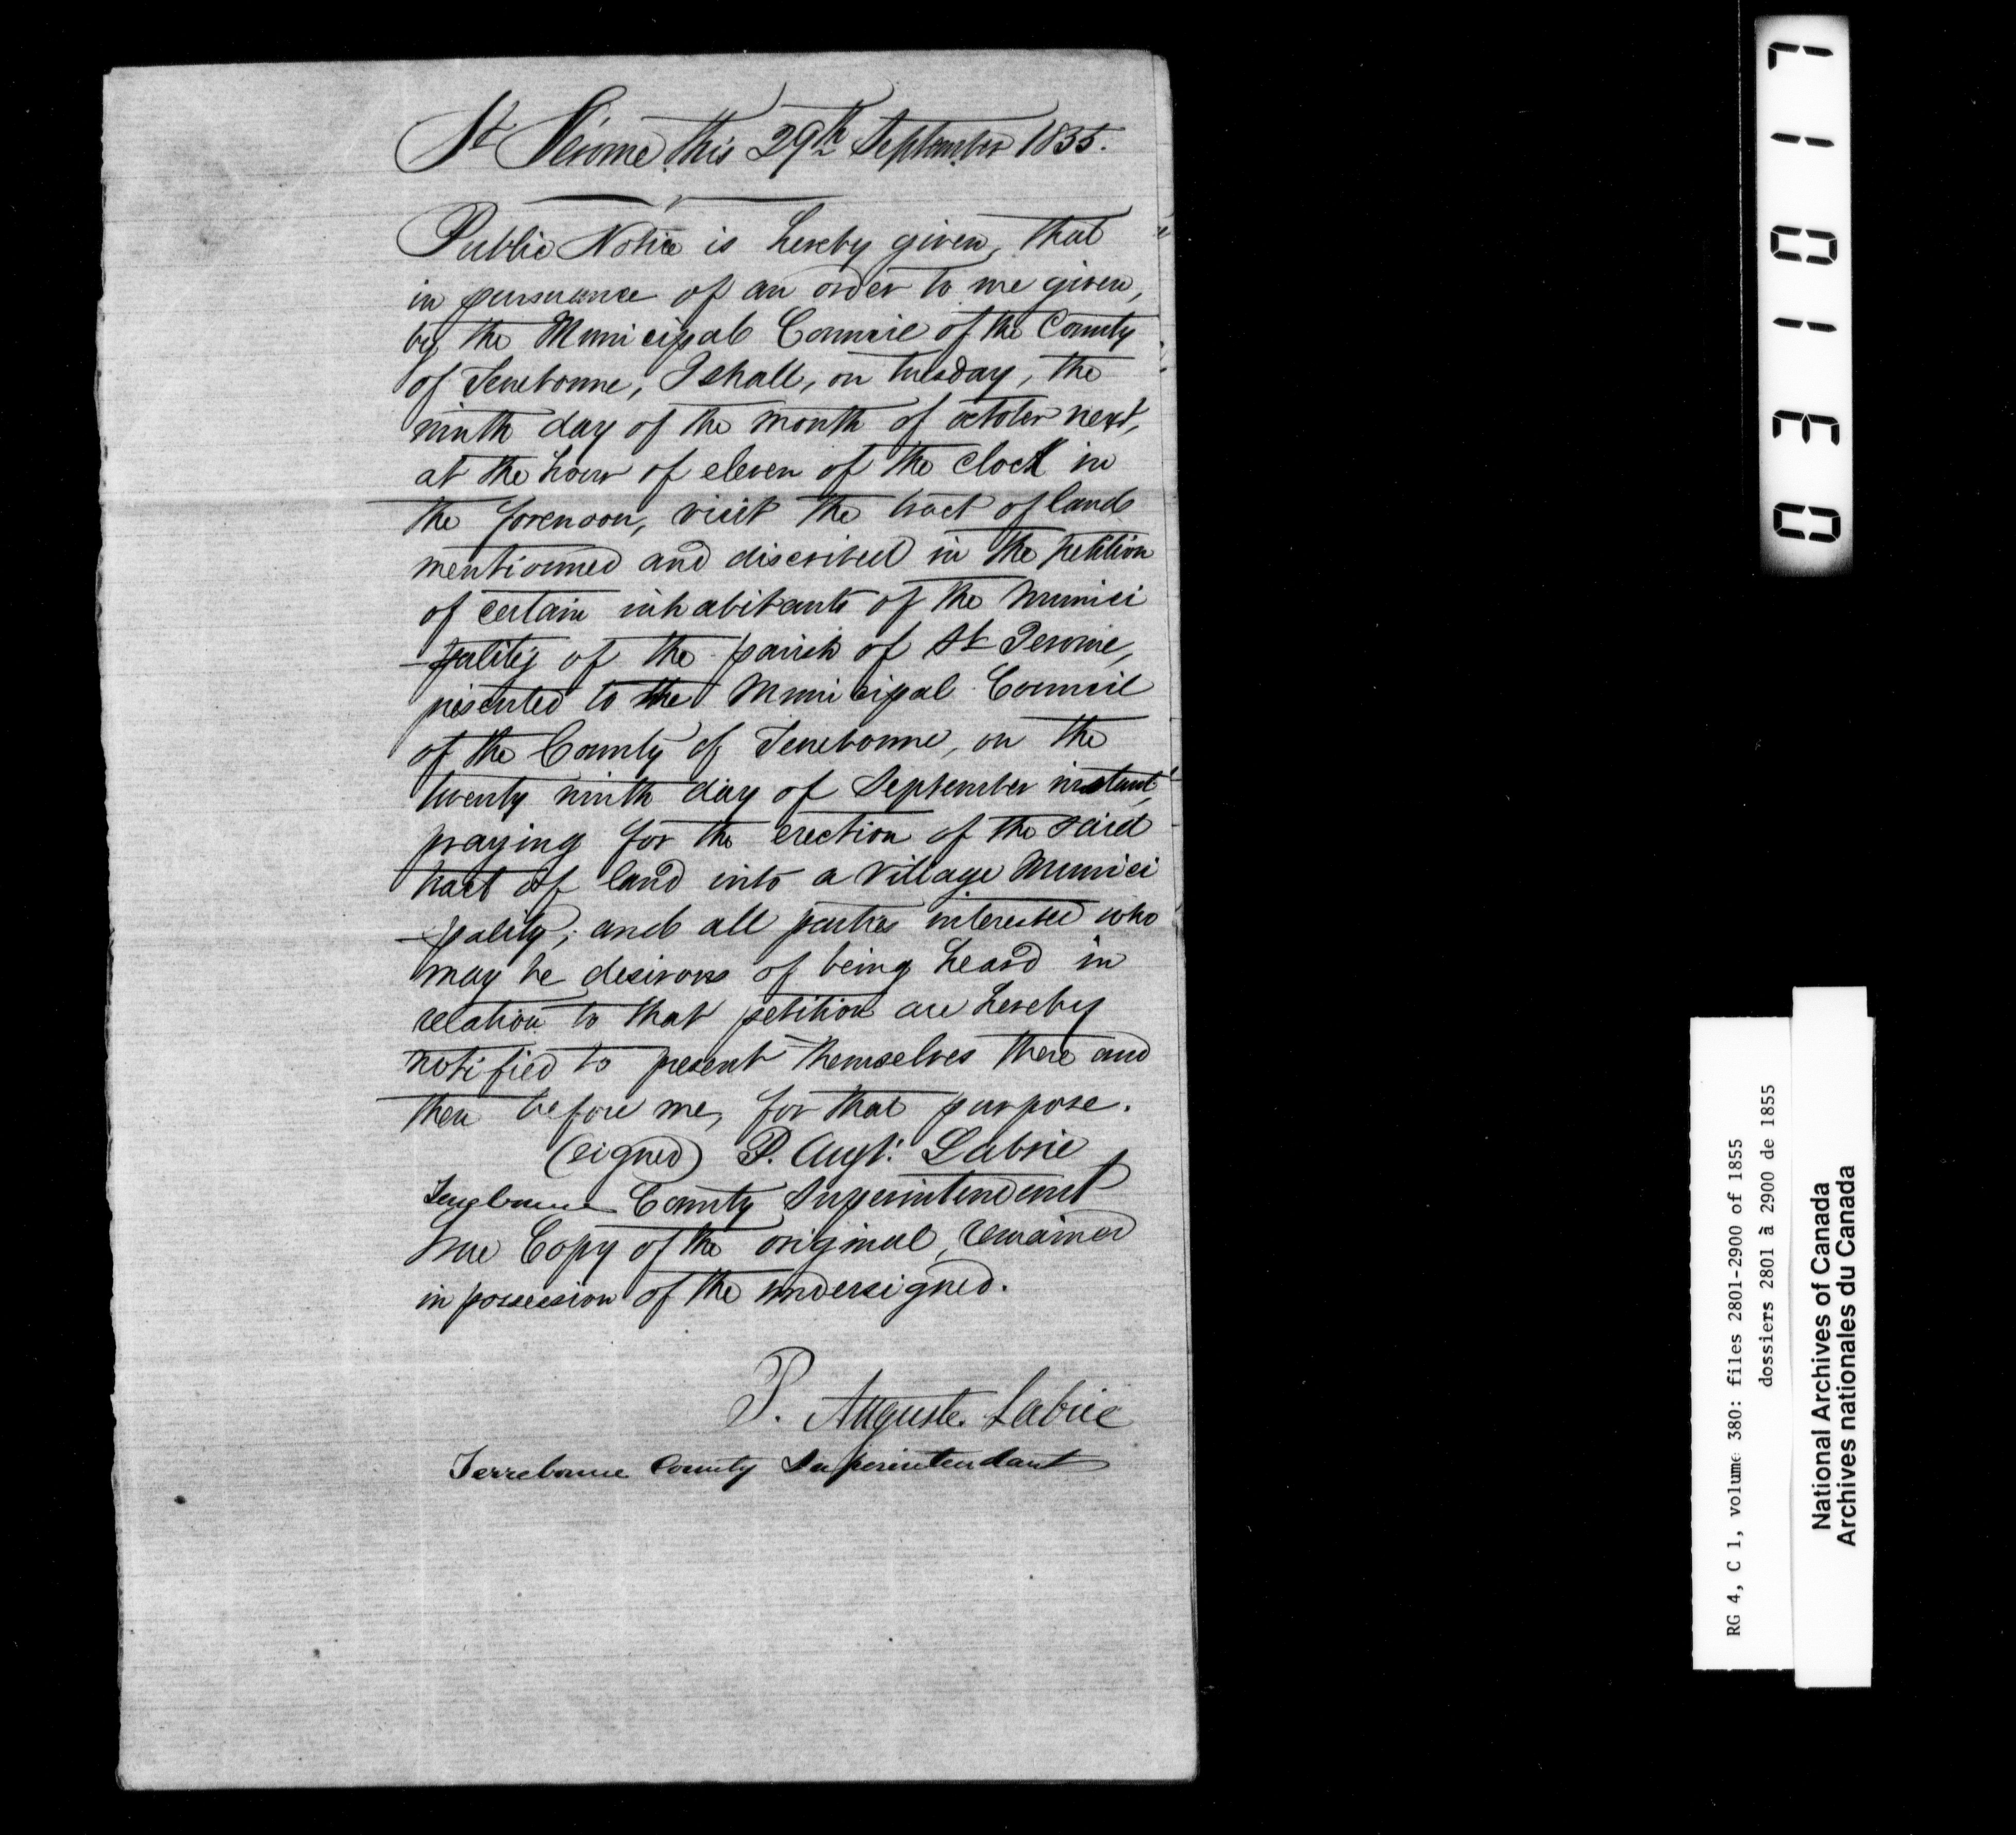 St Jérome, this 29th September 1855.
Public Notice is hereby given, that
in pursuance of an order to me given,
by the Municipal Council of the County
of Terrebonne, I shall, on tuesday, the
ninth day of the month of october next,
at the hour of eleven of the clock in
the forenoon, visit the tract of land
mentionned and discribed in the petition
of certain inhabitants of the Munici
-pality of the parish of St Jerome,
presented to the Municipal Council
of the County of Terrebonne, on the
twenty ninth day of September instant,
praying for the erection of the said
tract of land into a Village Munici
-pality; and all parties interested who
may be desirous of being heard in
relation to that petition are hereby
notified to present themselves there and
then before me, for that purpose.
(signed) P. Augt: Labrie
Terrebonne County Superintendent
True Copy of the original, remained
in possession of the undersigned.
P. Auguste Labrie
Terrebonne County Superintendant
031017
RG 4, C 1, volume 380: files 2801-2900 of 1855
dossiers 2801 à 2900 de 1855
National Archives of Canada
Archives nationales du Canada